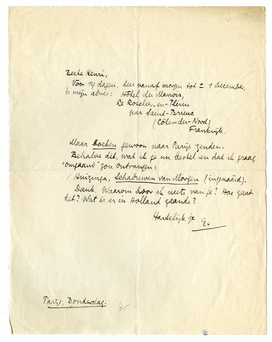 Beste Henri,
Voor 14 dagen, dus vanaf morgen tot ± 1 December,
is mijn adres: Hôtel du Manoir,
Le Roselier-en-Plérin
par Saint-Brieuc
(Côtes-du-Nord)
Frankrijk.
Maar Boeken gewoon naar Parijs zenden.
Behalve dit, wat ik je nu bestel en dat ik graag
"omgaand" zou ontvangen:
Huizinga, Schaduwen van Morgen (ingenaaid).
Dank. Waarom hoor ik niets van je? Hoe gaat
het? Wat is er in Holland gaande?
Hartelijk je
E.
Parijs, Donderdag.